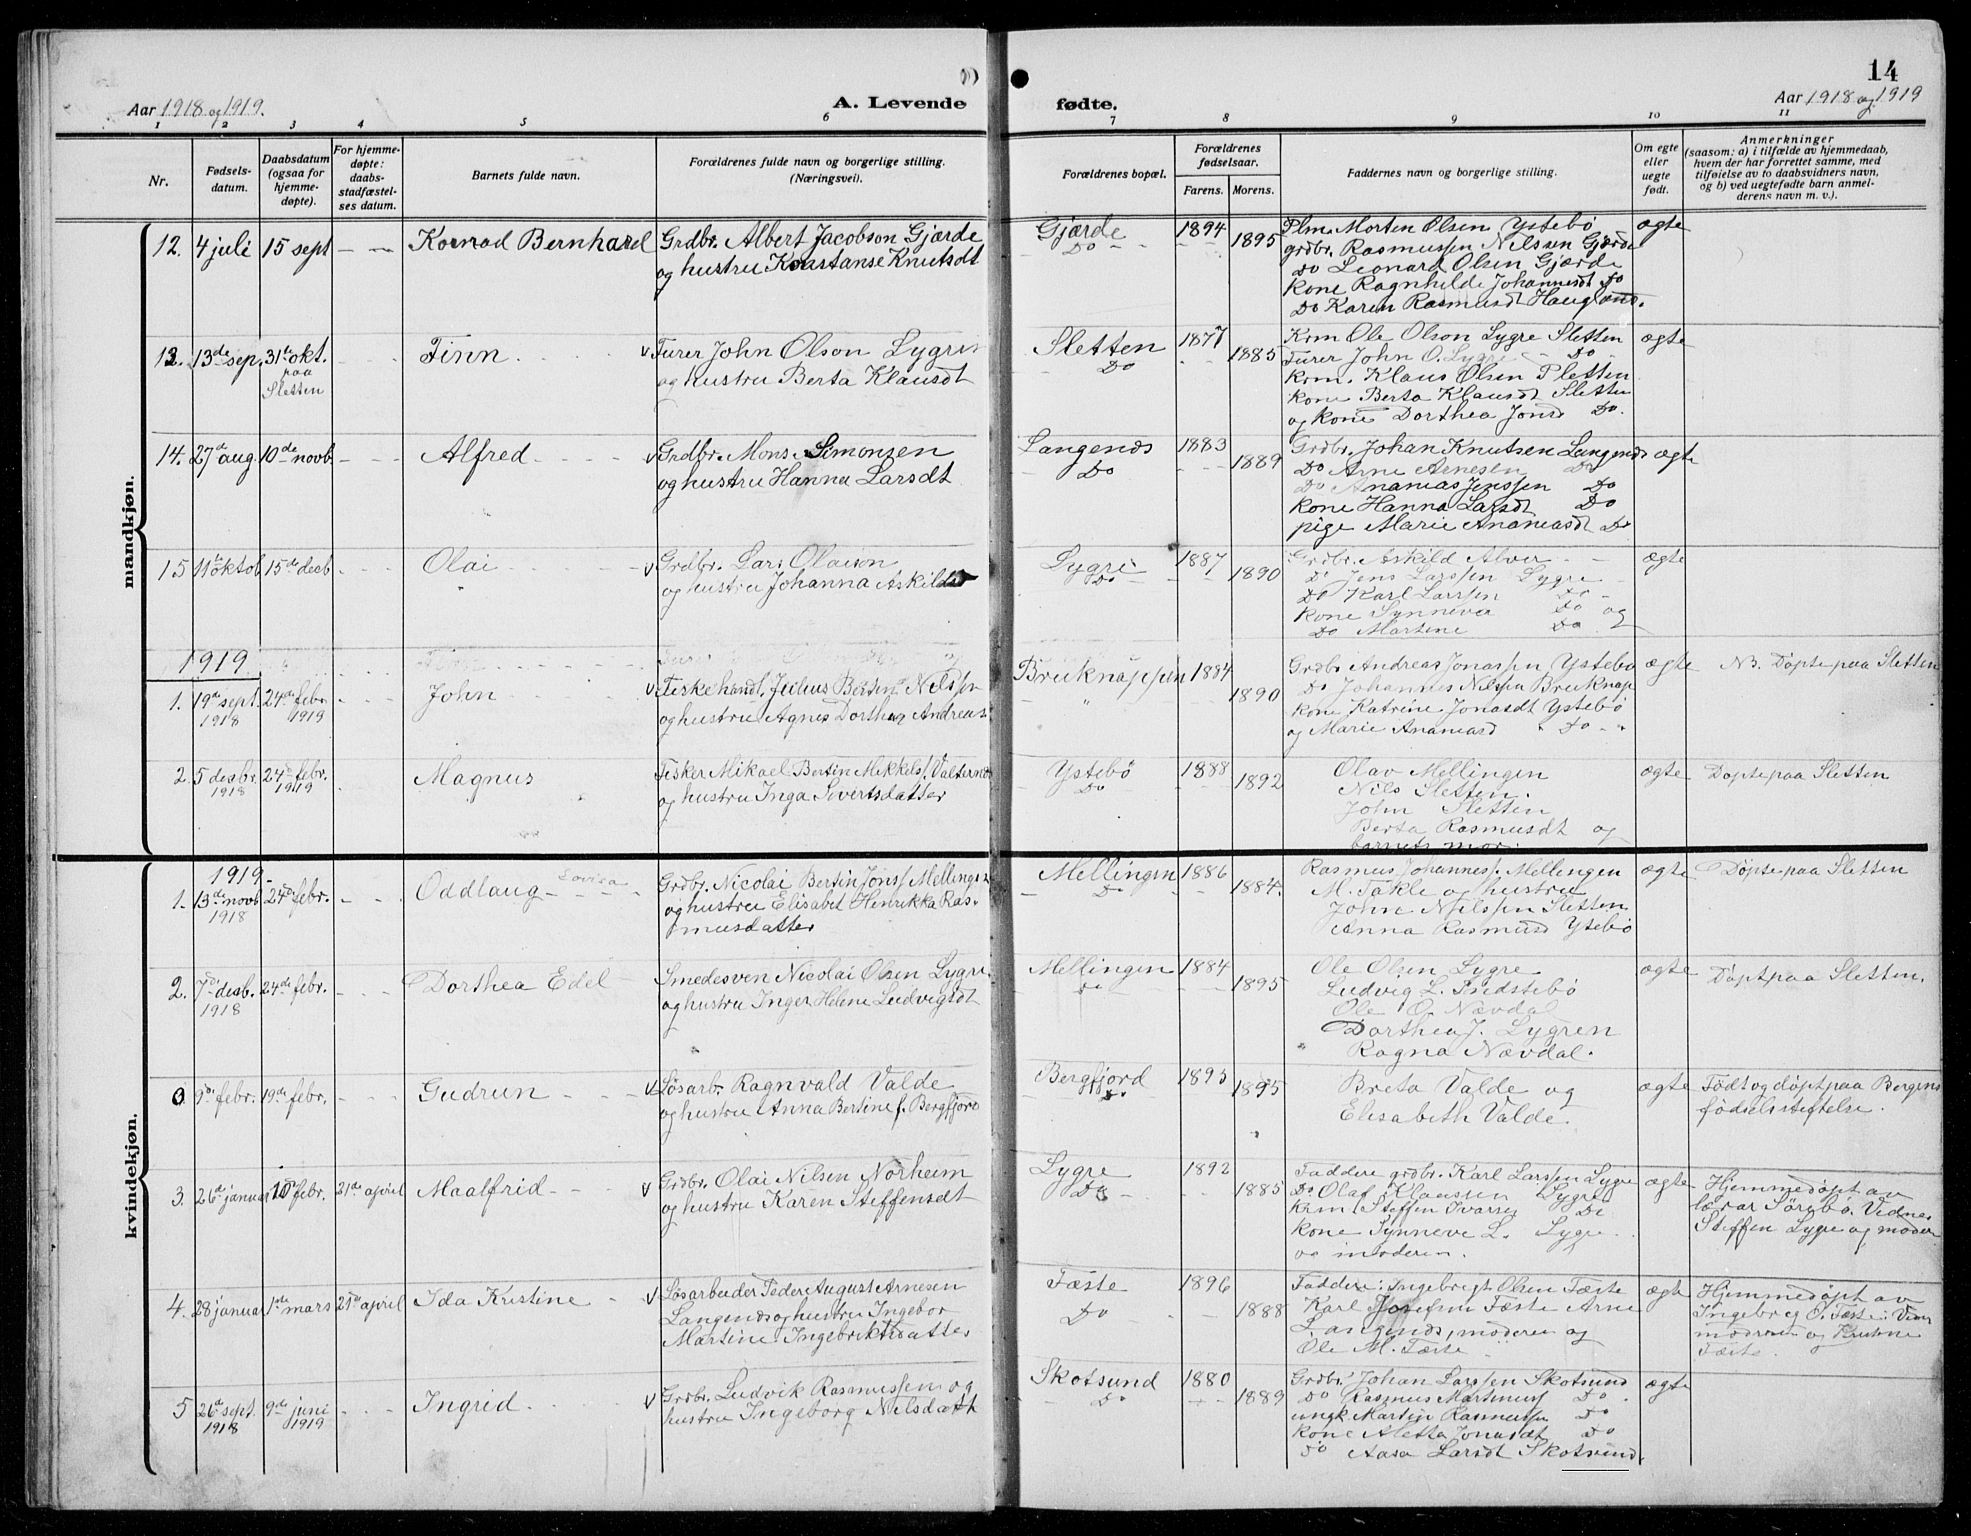 14
Aar 1918 og 1919.
A. Levende
fødte.
Aar 1918 og 1919
1 2 3 4 5 6 7 8 9 10 11
Nr.
Fødsels-
datum.
Daabsdatum
(ogsaa for
hjemme-
døpte).
For hjemme-
døpte:
daabs-
stadfæstel-
ses datum.
Barnets fulde navn.
Forældrenes fulde navn og borgerlige stilling.
(Næringsvei).
Forældrenes bopæl.
Forældrenes
fødselsaar.
Farens. Morens.
Faddernes navn og borgerlige stilling.
Om egte
eller
uegte
født.
Anmerkninger
(saasom: a) i tilfælde av hjemmedaab,
hvem der har forrettet samme, med
tilføielse av to daabsvidners navn,
og b) ved uegtefødte barn anmel-
derens navn m. v.).
mandkjøn.
12. 4 juli 15 sept - - Konrad Bernhard
Grdbr. Albert Jacobson Gjærde
og hustru Konstanse Knutsdt
Gjærde
Do
1894
1895
Plm. Morten Olsen Ystebö
grdbr. Rasmussen Nilssen Gjærde
Do Leonard Olsen Gjærde
Kone Ragnhilde Johannesdt Do
Do Karen Rasmusdt
ægte
13. 13de sep. 31te okt.
paa
Sletten
Finn
Furer John Olson Lygren
og hustru Berta Klausdt
Sletten
Do
1877
1885
Krm Ole Olson Lygre Sletten
Furer John O. Lygre - Do
krm. Klaus Olsen Sletten
Kone Berta Klausdt Sletten
og Kone Dorthea Jonsd Do.
ægte
14. 27de aug. 10de novb - - Alfred
v Grdbr. Mons Simonsen
og hustru Hanna Larsdt
Langenæs
Do
1883
1889
Grdbr. Johan Knutsen Langenæs
Do Arne Arnesen Do
Do Ananias Jenssen Do
Kone Hanna Larsdt Do
pige Marie Ananiasdt Do
ægte
15 11te oktob 15de desb - - Olai
v Grdbr. Lars Olaison
og hustru Johanna Askilds
Lygre
Do
1887
1890
Grdbr. Askild Alver
Do Jens Larssen Lygre
Do Karl Larssen Do
Kone Synneva Do og
Do Martine Do
ægte
1919
1. 19de sept. 24de febr
1918 1919
John
v Fiskehandl. Julius Bertin Nilssn
og hustru Agnes Dorthea Andreas
Bruknappen
1884
1890
Grdbr Andreas Jonassen Ystebö
Do Johannes Nilssen Bruknap
Kone Katrine Jonasdt Ystebö
og Marie Ananiasd " Do
ægte
NB. Döpte paa Sletten
2. 5 desbr. 24de febr.
1918 1919
Magnus
Fisker Mikael Bertin Mikkels.
og hustru Inga Sivertsdatter
Ystebö
Do
1888
1892
Olav Mellingen
Nils Sletten.
John Sletten
Berta Rasmusdt og
barnets mor.
ægte
Döpte paa Sletten
kvindekjøn.
1919.
1. 13de novb 24de febr.
1918
Oddlaug Lovisa
Grdbr. Nicolai Bertin Jonss Mellingen
og hustru Elisabet Henrikka Ras-
musdatter
Mellingen
Do
1886
1884.
Rasmus Johanness. Mellengen
M. Takle og hustru
John Nilssen Sletten
Anna Rasmusd Ystebö
ægte
Döpte paa Sletten
2. 7de desb. 24de febr.
1918
Dorthea Edel
Smedesven Nicolai Olsen Lygre
og hustru Inger Helene Ludvigsdt
Mellingen
Do
1884
1895
Ole Olsen Lygre
Ludvig L.
Ole O. Nævdal
Dorthea J. Lygren
Ragna Nævdal.
ægte
Döpt paa Sletten.
0 9de febr. 19de febr.
Gudrun
v Løsarb. Ragnvald Valde
og hustru Anna Bertine f. Bergfjord
Bergfjord
Do
1893
1895
Breta Valde og
Elisabeth Valde.
ægte
Födt og döpt paa Bergens
födselsstiftelse.
3. 26de januar 10de febr. 21de april Maalfrid
v Grdbr. Olai Nilsen Norheim
og hustru Karen Steffensdt
Lygre
Do
1892
1885
Faddere grdbr. Karl Larssen Lygre
Do Olaf Klaussen Lygre
Krm Steffen Ivarsen Do
Kone Synneve L. Lygre
og moderen.
ægte
Hjemmedöpt av
lærar Sörebö. Vidne,
Steffen Lygre og moder
4. 28 januar 1de mars 21de april Ida Kristine
v Løsarbeider Peder August Arnesen
Langenæs og hustru Ingebor
Martine Ingebriktsdatter
Fæste
Do
1896
1888
Faddere: Ingebrigt Olsen Fæste
Karl Josefsen Fæste Arne
Langenæs, moderen og
Ole M. Fæste
ægte
Hjemmedöpt av
Ingebrig O. Fæste:
moderen og Kristine
Fæste.
5 26de sept. 9de juni
1918 1919
Ingrid
v Grdbr. Ludvik Rasmussen og
hustru Ingeborg Nilsdatt
Skotsund
Do
1880
1889
Grdbr. Johan Larssen Skotsund
Do Rasmus Martinuss Do
ungk Martin Rasmussen Do
Kone Aletta Jonasdt Do
Do Aasa Larsdt Skotsund.
ægte